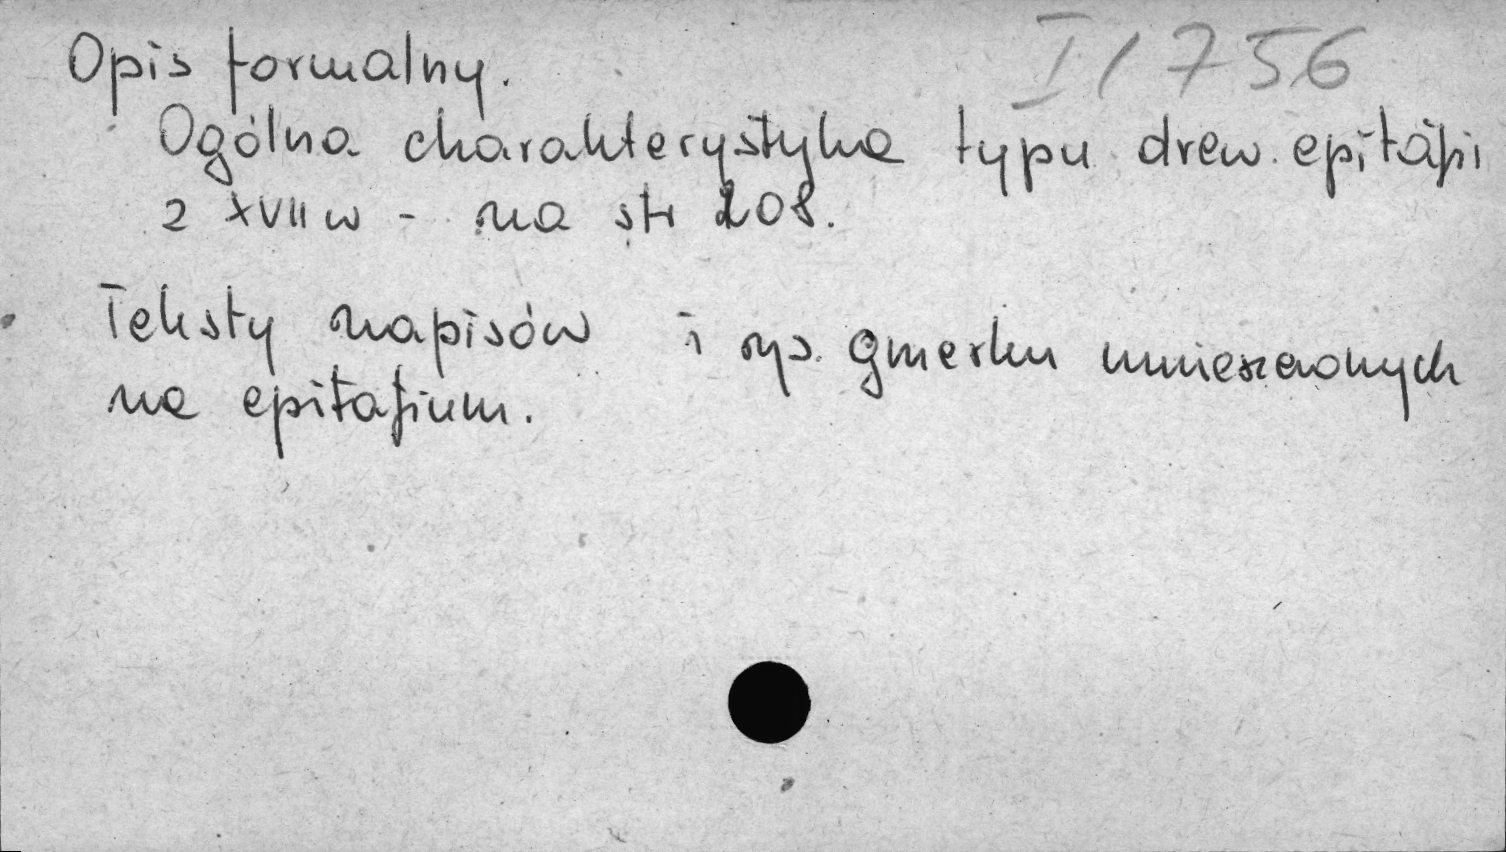 I/756
Opis formalny.
Ogólna charakterystyka typu drew. epitafii
z XVII w - na str 208.
Teksty napisów i rys. gmerku umieszczonych
na epitafium.